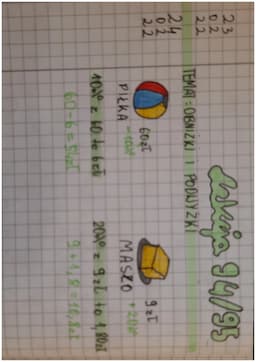 23
02
22
24
02
22
Lekcja 94/95
TEMAT: OBNIŻKI I PODWYŻKI
60 zł
PIŁKA -10%
9 zł
MASŁO +20%
10% z 60 to 6 zł
60-6=54zł
20% z 9 zł to 1,80zł
9+1,8=10,8zł